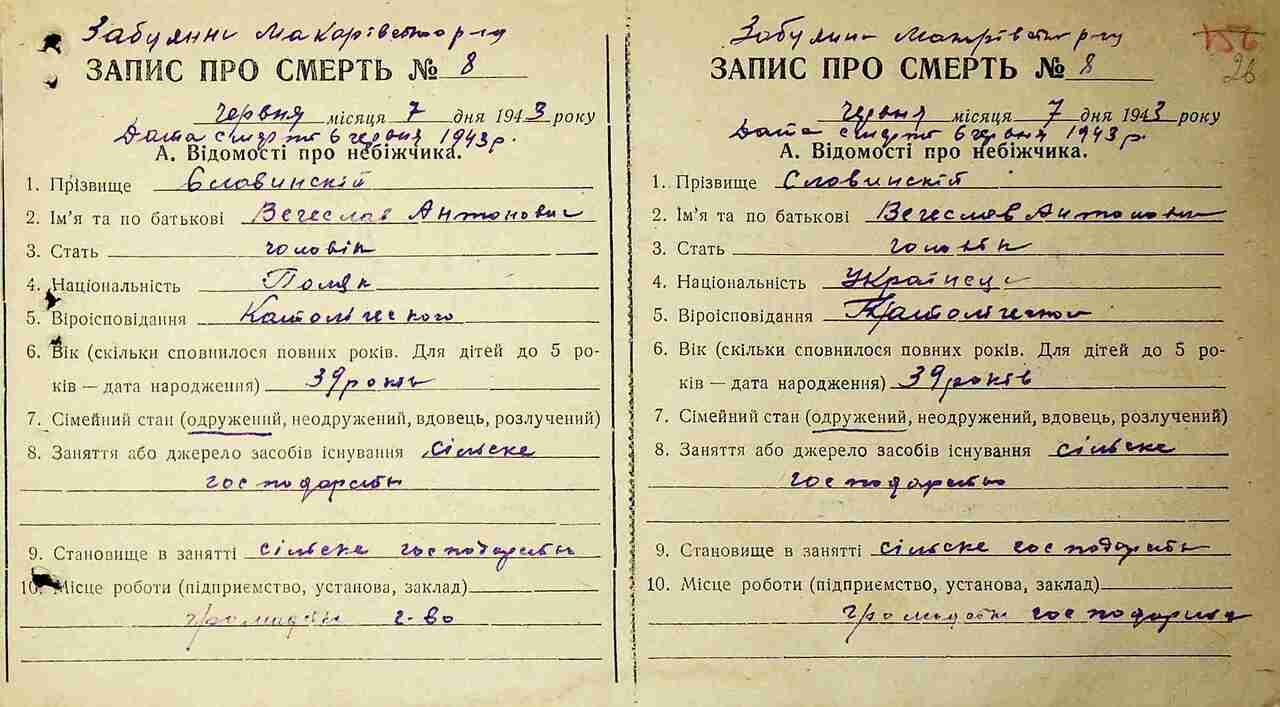 Забуянни Макарівсткого р-ну
ЗАПИС ПРО СМЕРТЬ № 8
Червня місяця 7 дня 1943 року
Дата смерти 6 червня 1943 р.
А. Відомості про небіжчика.
1. Прізвище Словинский
2. Ім'я та по батькові Вечеслав Антонович
3. Стать чоловік
4. Національність Поляк
5. Віроісповідання Католіческого
6. Вік (скільки сповнилося повних років. Для дітей до 5 ро-
ків — дата народження) 39 років
7. Сімейний стан (одружений, неодружений, вдовець, розлучений)
8. Заняття або джерело засобів існування сільске
господарство
9. Становище в занятті сільске господарство
10. Місце роботи (підприємство, установа, заклад)
г-во
156
26
ЗАПИС ПРО СМЕРТЬ № 8
Червня місяця 7 дня 1943 року
Дата смерти 6 червня 1943 р.
А. Відомості про небіжчика.
1. Прізвище Словинский
2. Ім'я та по батькові Вечеслав Антонович
3. Стать чоловік
4. Національність Українец
5. Віроісповідання Католіческой
6. Вік (скільки сповнилося повних років. Для дітей до 5 ро-
ків — дата народження) 39 років
7. Сімейний стан (одружений, неодружений, вдовець, розлучений)
8. Заняття або джерело засобів існування сільске
господарство
9. Становище в занятті сільске господарство
10. Місце роботи (підприємство, установа, заклад)